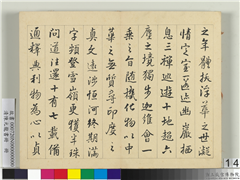 之年體拔浮華之世凝
情定室匿迹幽巖栖
息三禪巡遊十地超六
塵之境獨步迦維會一
乘之旨隨機化物以中
華之無質尋印度之
真文遠涉恒河終期滿
字頻登雪嶺更獲半珠
問道往還十有七載備
通釋典利物為心以貞
14